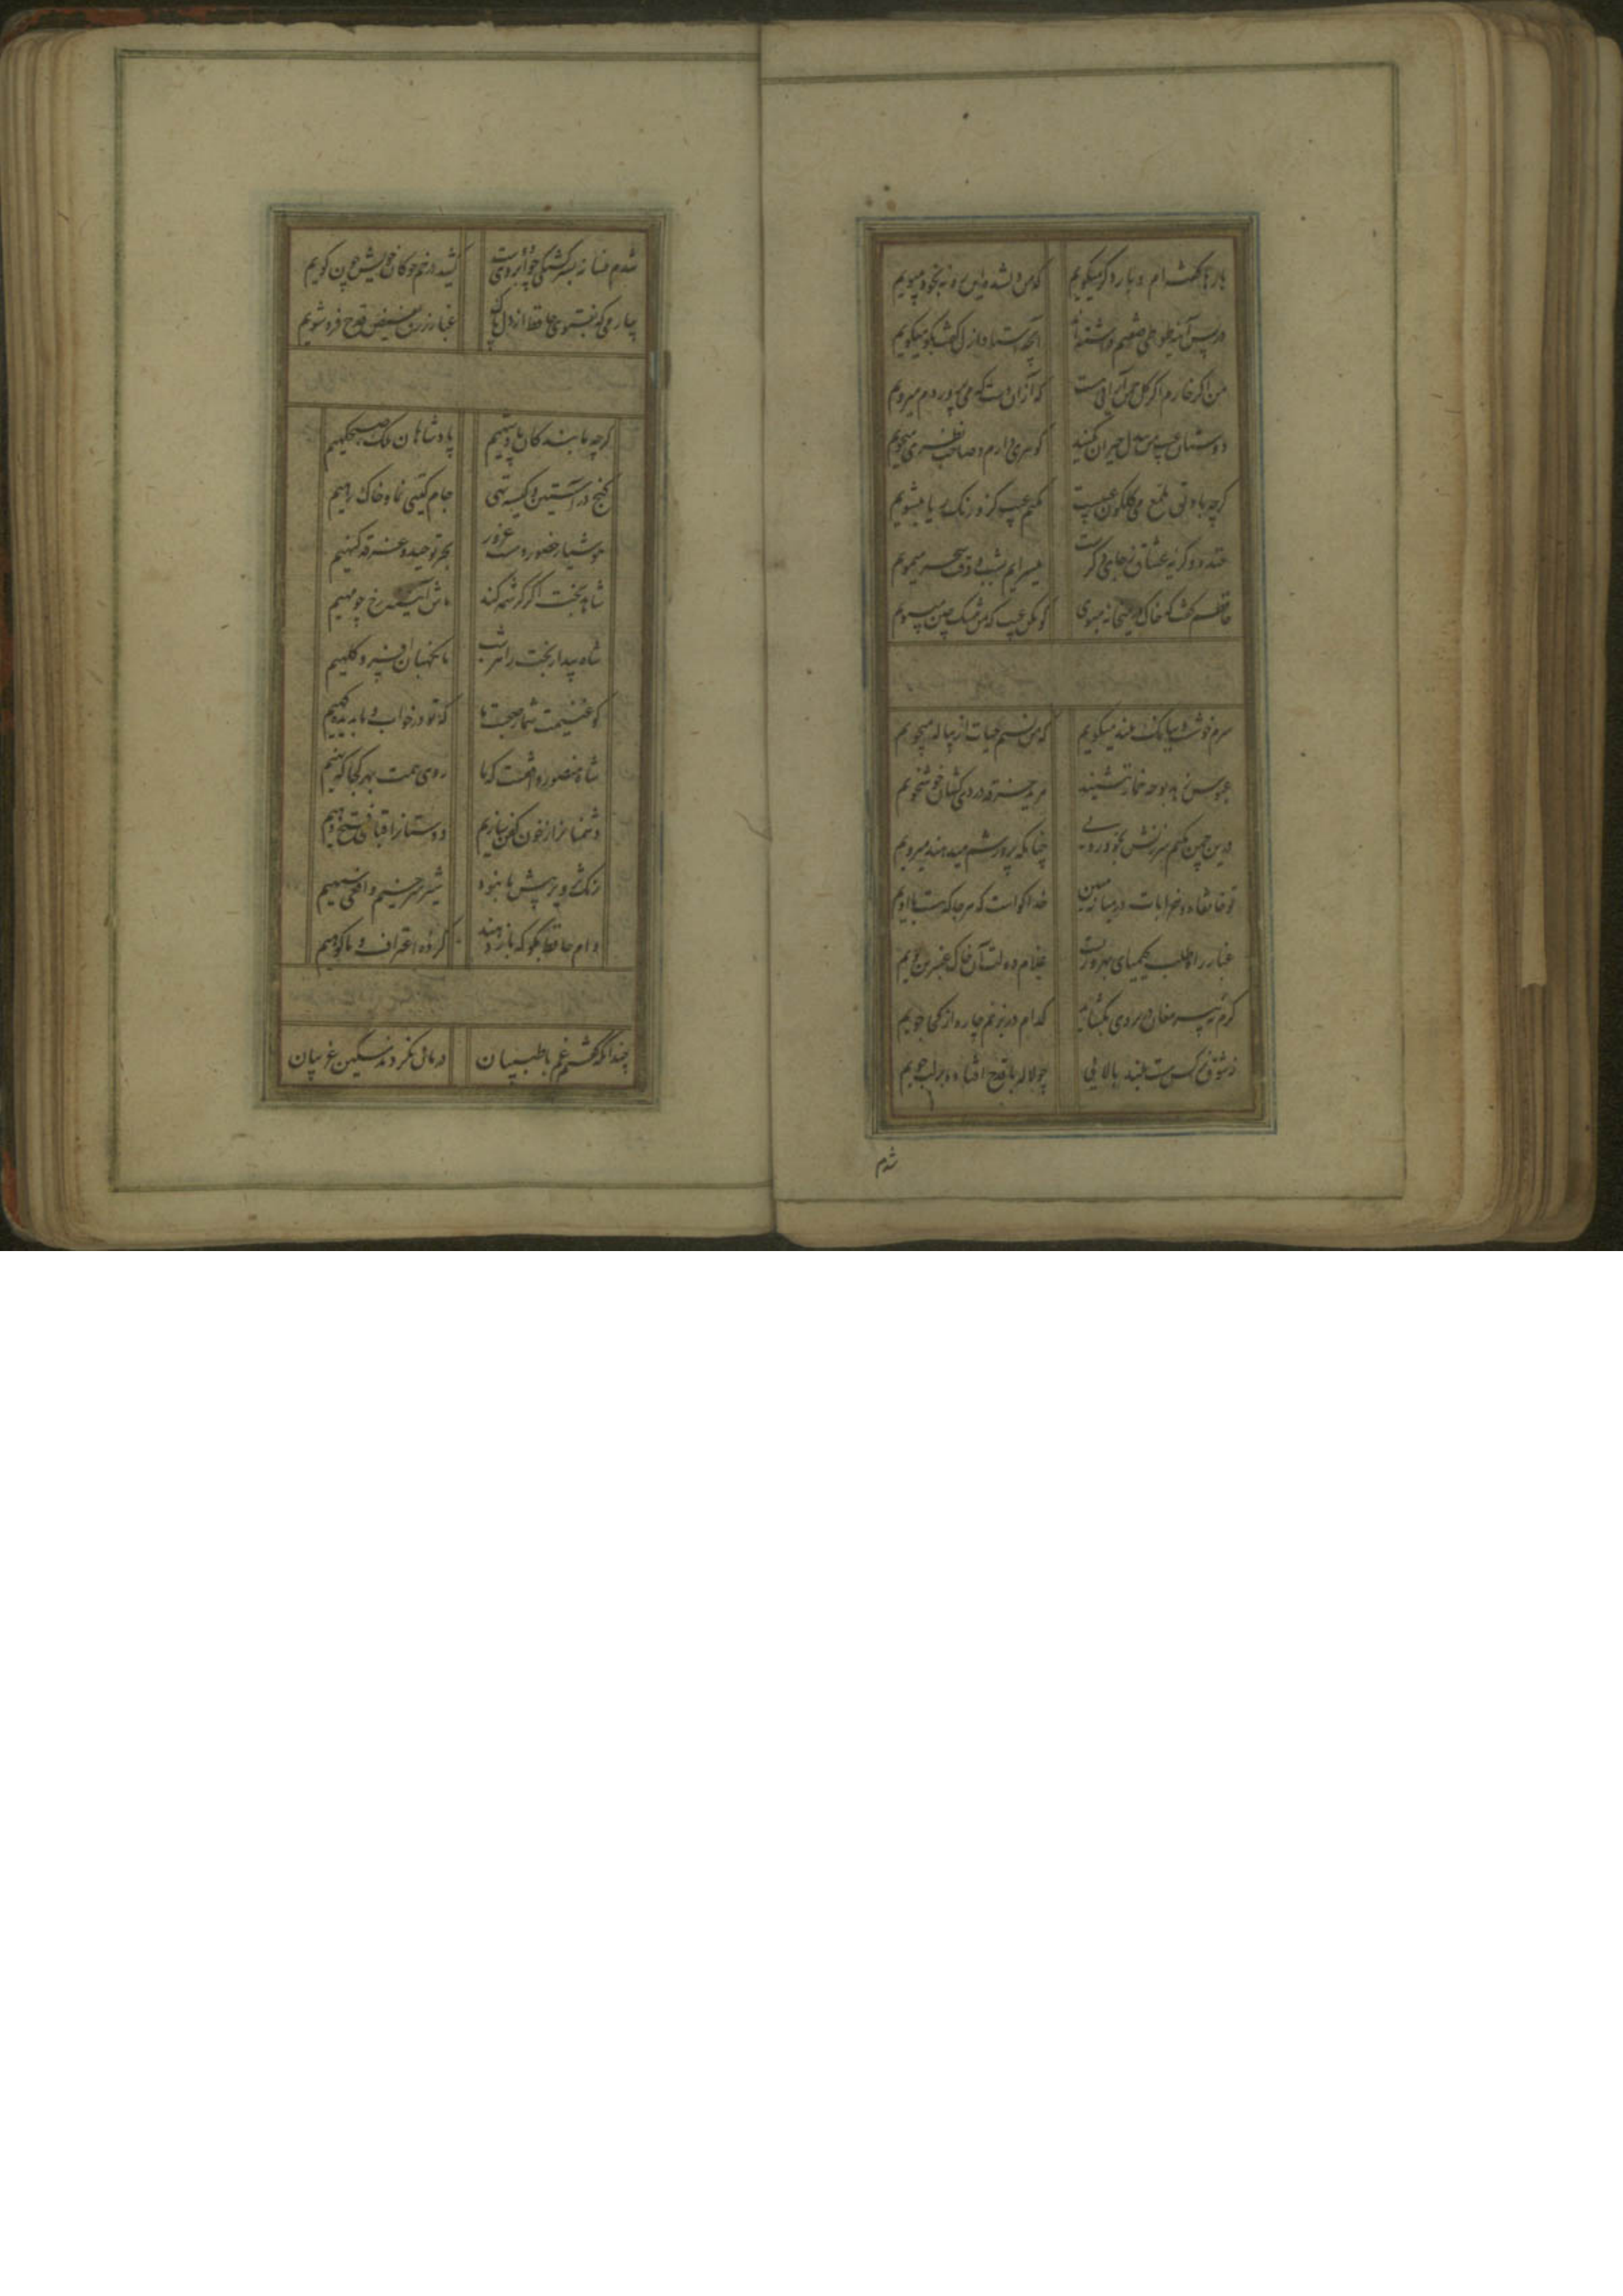 بارها گفته ام و بار دگر میگویم که من دلشده این ره نه بخود میپویم
در پس آینه طوطی صفتم داشته اند آنچه استاد ازل گفت بگو میگویم
من اگر خارم اگر گل چمن آرایی هست که از آن دست که می پروردم میرویم
دوستان عیب من بیدل حیران مکنید گوهری دارم و صاحب نظری میجویم
گرچه با دلق ملمع می گلگون عیبست مکنم عیب کزو رنگ ریا میشویم
خنده و گریه عشاق ز جای دگرست میسرایم بشب و وقت سحر میمویم
حافظم گفت که خاک در میخانه مبوی گو مکن عیب که من مشک ختن میبویم
سرم خوشست و ببانک بلند میگویم که من نسیم حیات از پیاله میجویم
عبوس زهد بوجه خمار ننشیند مرید خرقه دردی کشان خوشخویم
درین چمن مکنم سرزنش بخود رویی چنانکه پرورشم میدهند میرویم
تو خانقاه و خرابات در میانه مبین خدا گواست که هر جا که هست با اویم
غبار راه طلب کیمیای بهروزیست غلام دولت آن خاک عنبرین بویم
گرم نه پیر مغان در بروی بگشاید کدام در بزنم چاره از کجا جویم
ز شوق نرگس مست بلند بالایی چو لاله با قدح افتاده بر لب جویم
شدم
شدم فسانه بسرگشتگی چو ابروی دوست کشید در خم چوکان خویش چون گویم
بیار می که بفتوی حافظ از دل پاک غبار زرق بفیض قدح فرو شویم
گرچه ما بندگان پادشهیم پادشاهان ملک صبحگهیم
گنج در آستین و کیسه تهی جام گیتی نما و خاک رهیم
هوشیار حضور و مست غرور بحر توحید و غرقه گنهیم
شاهد بخت اگر کرشمه کند ماش آیینه رخ چو مهیم
شاه بیدار بخت را هر شب ما نگهبان افسر و کلهیم
گو غنیمت شمار صحبت ما که تو در خواب و ما بدیده گهیم
شاه منصور واقفست که ما روی همت بهر کجا که نهیم
دشمنانرا ز خون کفن سازیم دوستانرا قبای فتح دهیم
رنگ تزویر پیش ما نبود شیر سرخیم و افعی سیهیم
وام حافظ بگو که باز دهند کرده اعتراف و ما گوهیم
چندانکه گفتم غم با طبیبان درمان نکردند مسکین غریبان